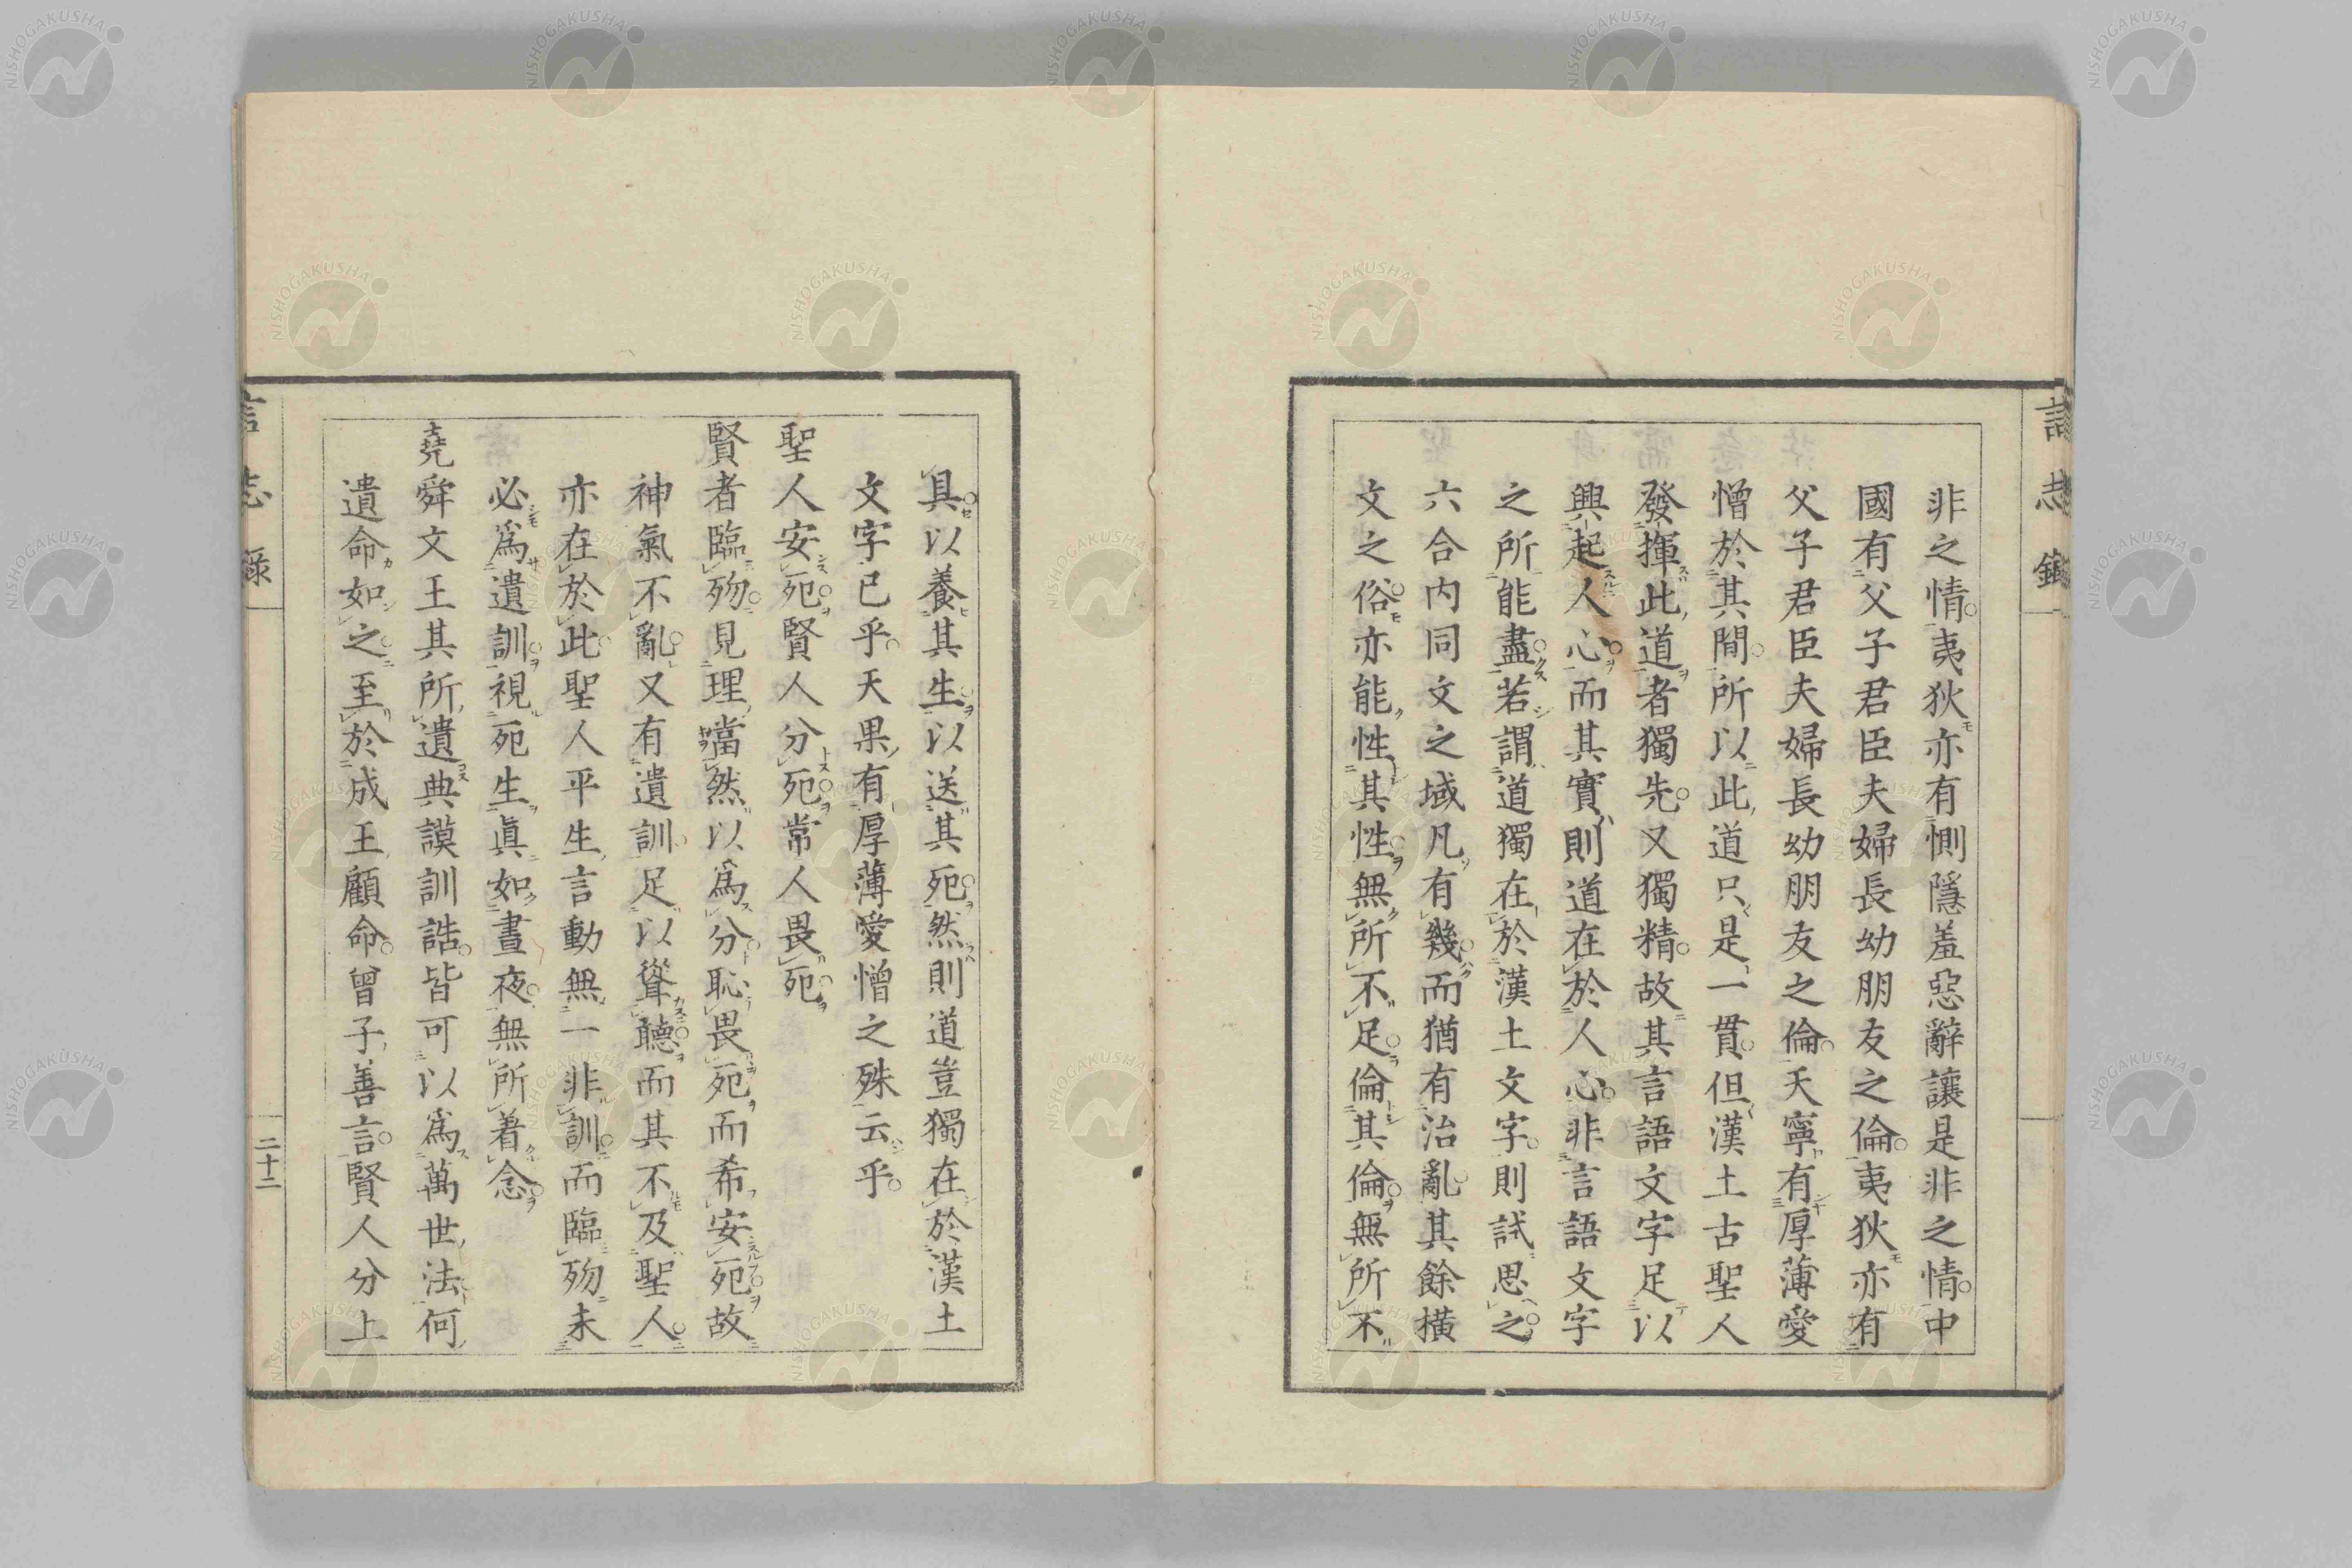 非之情夷狄亦有惻隱羞惡辭讓是非之情中
國有父子君臣夫婦長幼朋友之倫夷狄亦有
父子君臣夫婦長幼朋友之倫天寧有厚薄愛
憎於其間所以此道只是一貫但漢土古聖人
發揮此道者獨先又獨精故其言語文字足以
興起人心而其實則道在於人心非言語文字
之所能盡若謂道獨在於漢土文字則試思之
六合内同文之域凡有幾而猶有治亂其餘橫
文之俗亦能性其性無所不足倫其倫無所不
具以養其生以送其死然則道豈獨在於漢土
文字已乎天果有厚薄愛憎之殊云乎
聖人安死賢人分死常人畏死
賢者臨歾見理當然以為分恥畏死而希安死故
神氣不亂又有遺訓足以聳聽而其不及聖人
亦在於此聖人平生言動無一非訓而臨歾未
必爲遺訓視死生眞如晝夜無所著念
堯舜文王其所遺典謨訓誥皆可以爲萬世法何
遺命如之至於成王顧命曾子善言賢人分上
言志録
二十二
NISHOGAKUSHA